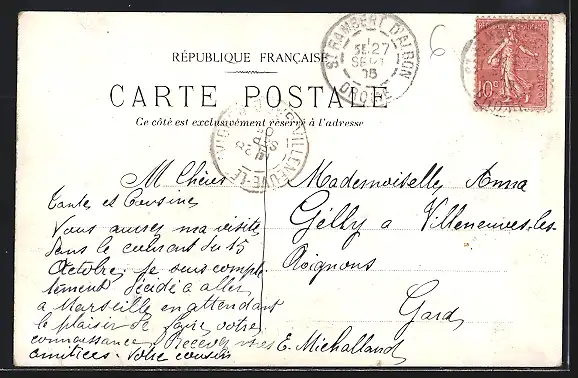 RÉPUBLIQUE FRANÇAISE
CARTE POSTALE
Ce côté est exclusivement réservé à l'adresse
ST RAMBERT D'ALBON
27
SEPT
DROME
10c
VILLENEUVE-LE
6
M Chères
Tante et Cousine
Vous aurez ma visite
dans le courant du 15
Octobre, je suis complè-
tement décidé a aller
a Marseille en attendant
le plaisir de faire votre
connaissance. Recevez mes
amitiées. Votre cousin
E. Michalland
Mademoiselle Anna
Gelly a Villeneuve-les-
Avignons
Gard